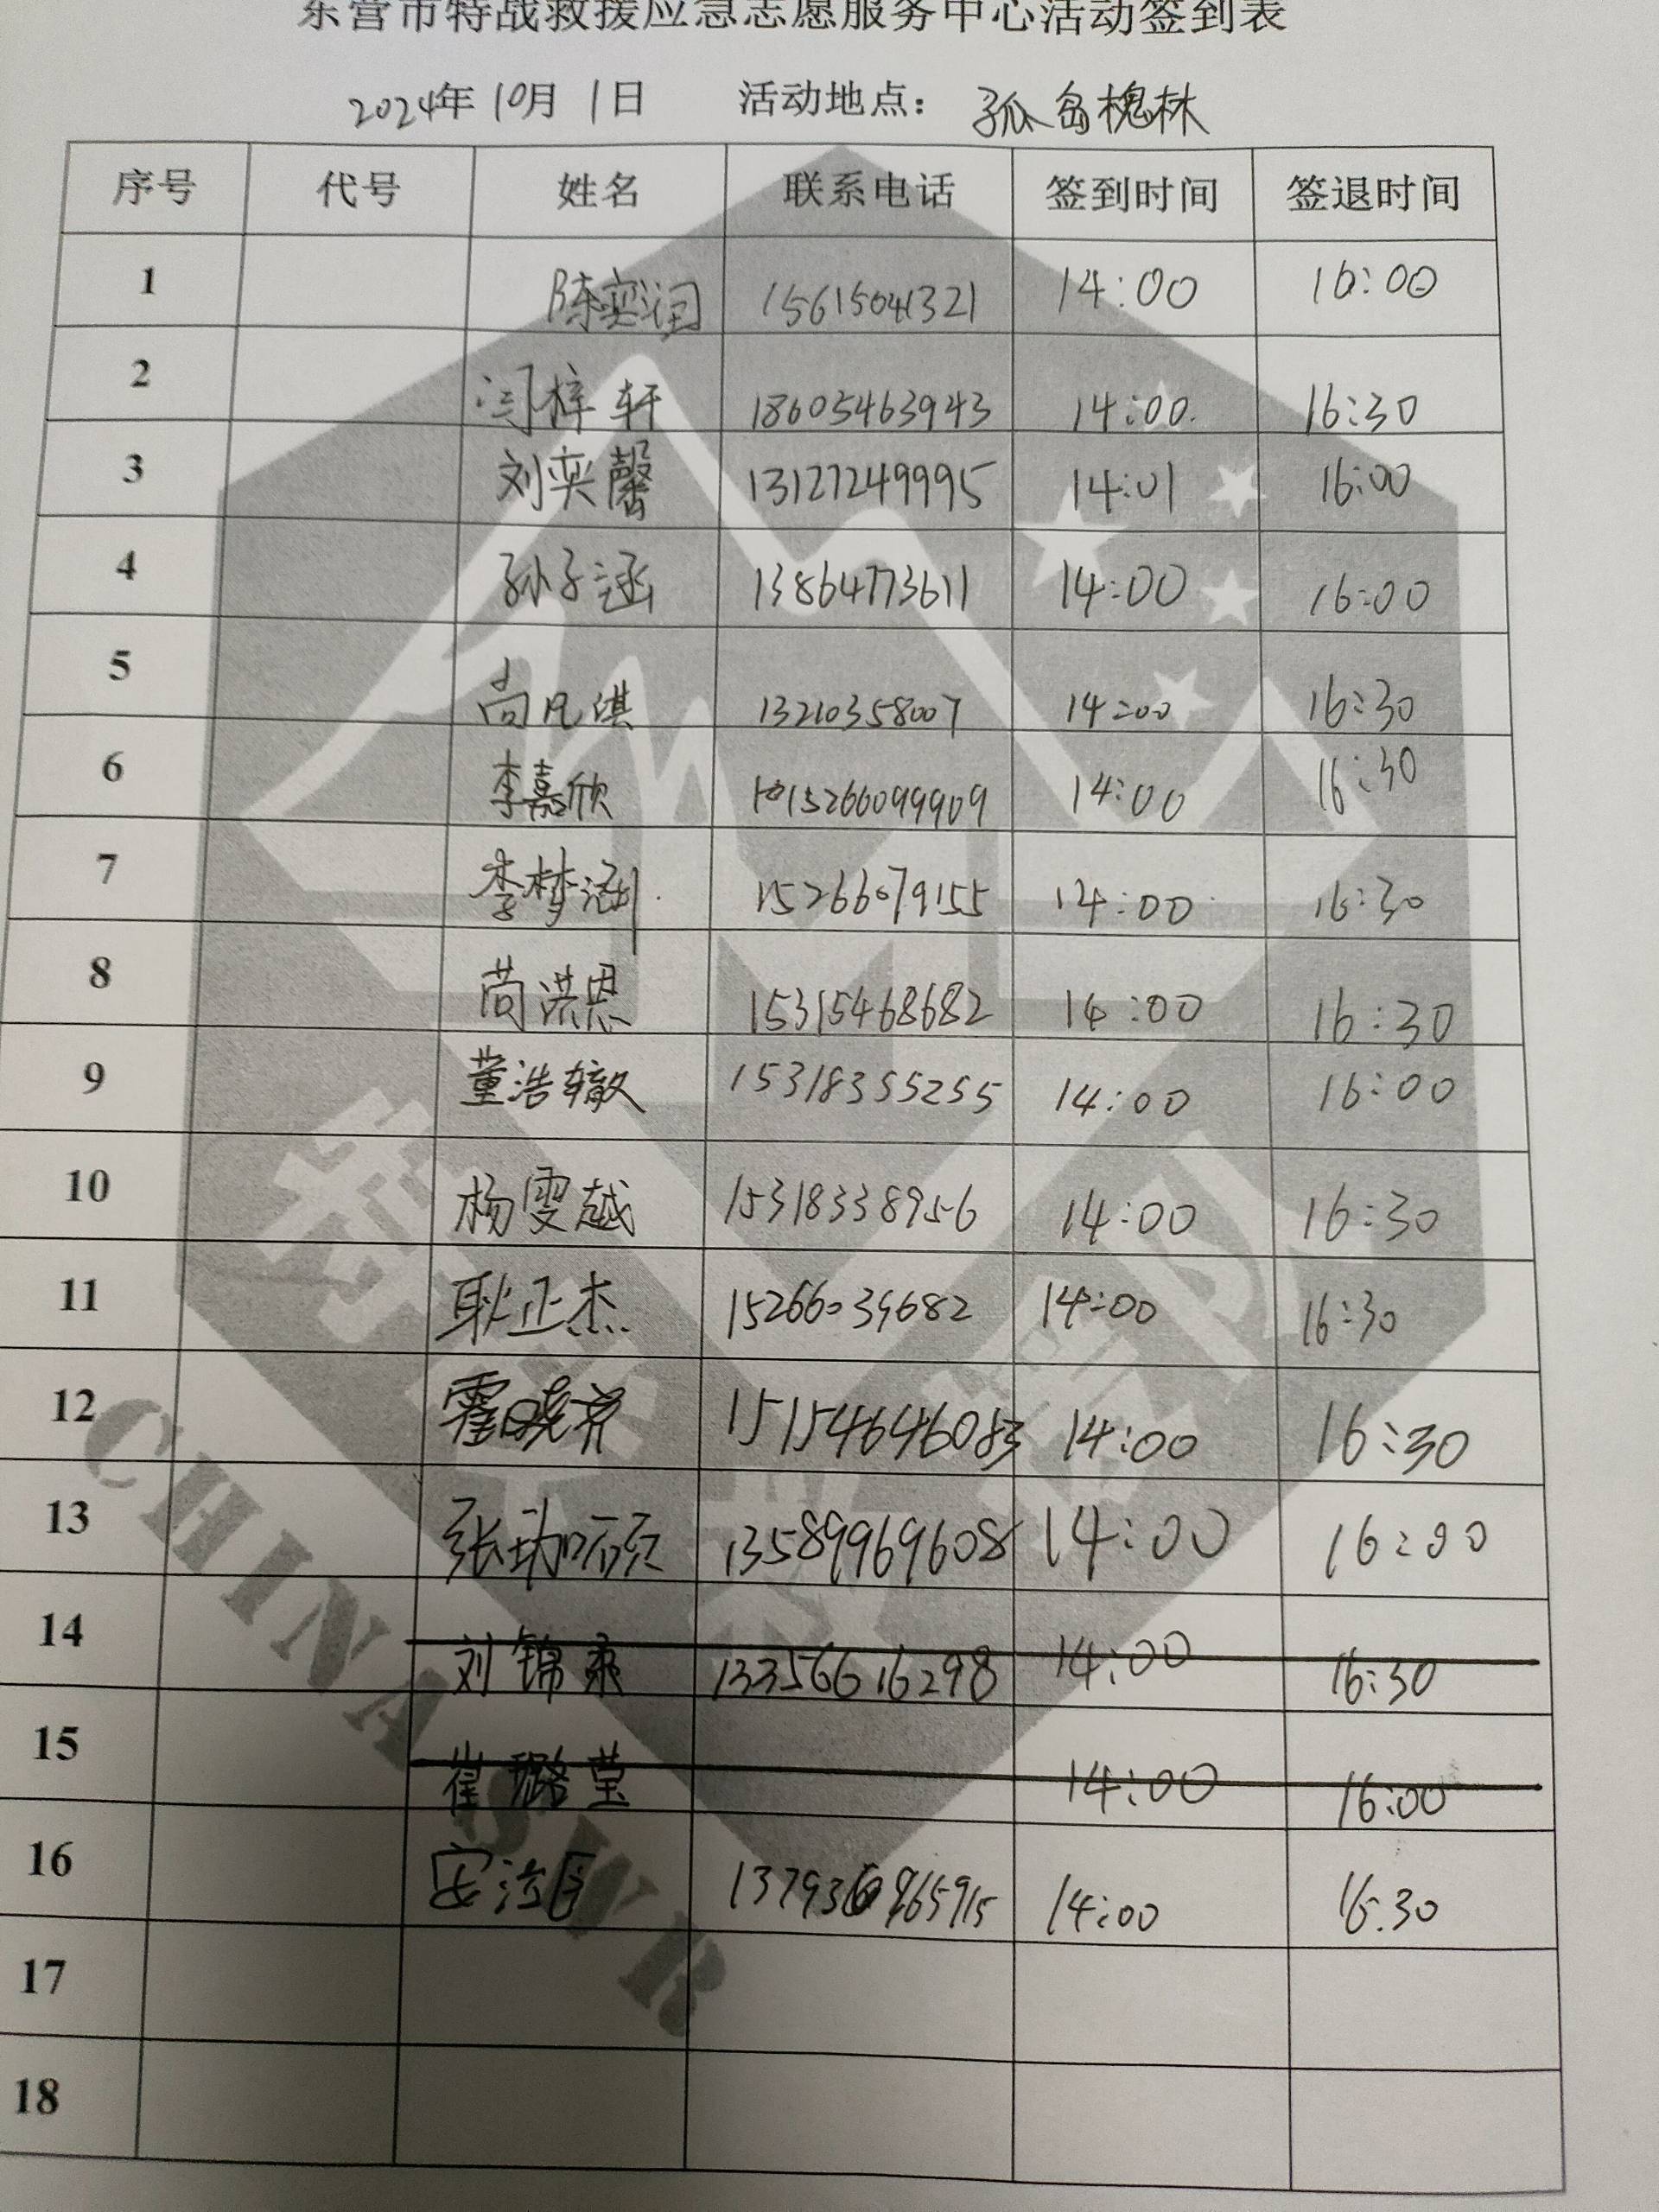 东营市特战救援应急志愿服务中心活动签到表
2024年10月1日 活动地点： 孤岛槐林
序号 代号 姓名 联系电话 签到时间 签退时间
1 陈奕润 15615041321 14:00 16:00
2 闫梓轩 18605463943 14:00 16:30
3 刘奕馨 13127249995 14:01 16:00
4 孙子涵 13864773611 14:00 16:00
5 尚凡淇 13210358007 14:00 16:30
6 李嘉欣 15266099909 14:00 16:30
7 李梦涵 15266079155 14:00 16:30
8 尚洪恩 15315468682 14:00 16:30
9 董浩辙 15318355255 14:00 16:00
10 杨雯越 15318338956 14:00 16:30
11 耿正杰 15266039682 14:00 16:30
12 霍晓齐 15154646083 14:00 16:30
13 张珈硕 13589969608 14:00 16:00
14 刘锦 13356616298 14:00 16:30
15 崔璐莹 14:00 16:00
16 安 14:00 16:30
17
18
CHINA SWR